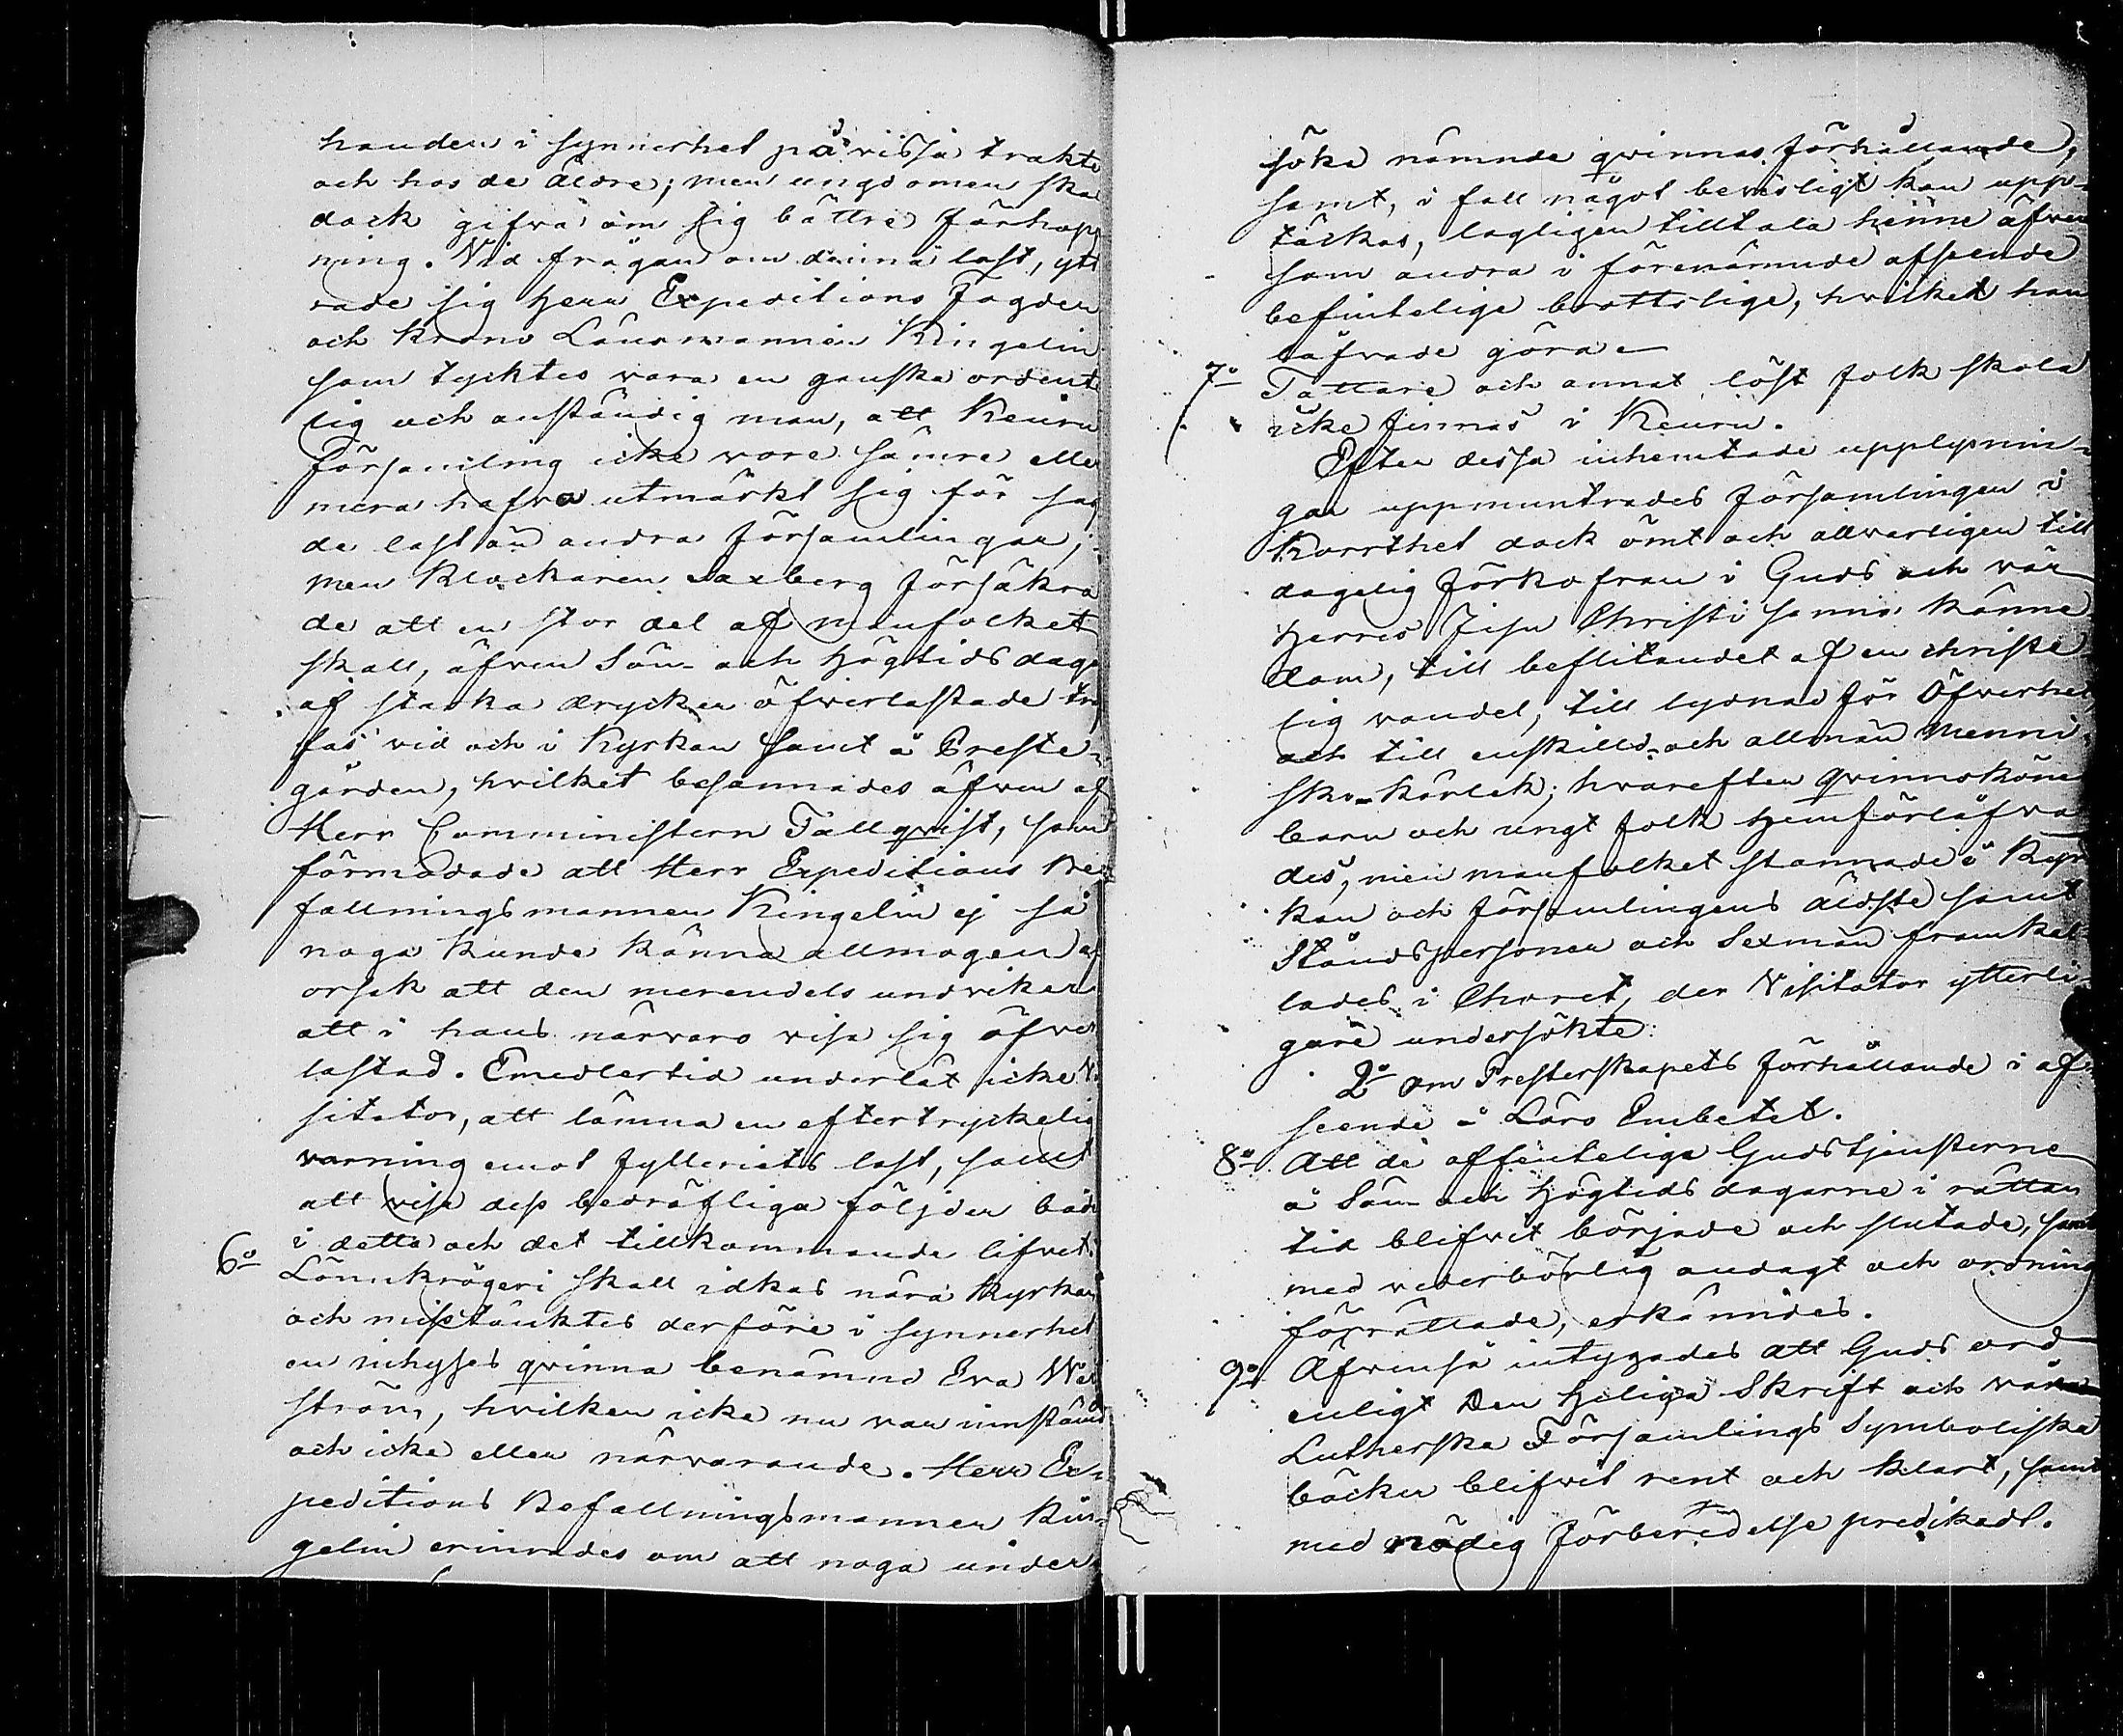 handen i synnerhet på vissa trakte
och hos de äldre; men ungdomen ska
dock gifva om sig bättre förhopp
ning. Vid frågan om denna last, ytt
rade sig Herr Expeditions Fogden
och Krono Länsmannen Kingelin
som tycktes vara en ganska ordent
lig och anständig man, att Keuru
Församling icke vore sämre eller
mera hafva utmärkt sig för sag
de last än andra församlingar;
men Klockaren Saxberg försäkra
de att en stor del af manfolket
skall, äfven Sön- och Högtidsdaga
af starka drycker öfverlastade träf
fas vid och i Kyrkan samt å Preste-
gården, hvilket besannades äfven af
Herr Comministern Tallqvist, som
förmodade att Herr Expeditions Be-
fallningsmannen Kingelin ej så
noga kunde känna allmogen af
orsak att den merendels undviker
att i hans närvaro visa sig öfver
lastad. Emedlertid underlät icke Vi
sitator, att lämna en eftertryckelig
varning emot fylleriets last, samt
att visa dess bedröfliga följder både
i detta och det tillkommande lifvet.
6o Lönnkrögeri skall idkas nära Kyrkan
och misstänktes derföre i synnerhet
en inhyses qvinna benämnd Eva Wes
ström, hvilken icke nu var innstämd
och icke eller närvarande. Herr Ex-
peditions Befallningsmannen Kin-
gelin erinrades om att noga under
söka nämnde qvinnas förhållande,
samt, i fall något bevisligt kan upp-
täckas, lagligen tilltala henne äfven
som andra i förenämnde afseende
befintelige brottslige, hvilket han
låfvade göra.
7o Tattare och annat löst folk skola
icke finnas i Keuru.
Efter dessa inhemtade upplysnin-
gar uppmuntrades församlingen i
Korrthet dock ömt och allvarligen till
dagelig förkofran i Guds och vår
Herres Jesu Christi sanna känne
dom, till beflitandet af en christe-
lig vandel, till lydnad för Öfverhet
och till enskilld- och allmän Menni-
sko-kärlek; hvareften qvinnokönet
barn och ungt folk hemförlåfva
des, men manfolket stannade i Kyr
kan och församlingens äldste samt
Ståndspersoner och Sexmän framkal-
lades i Choret, der Visitator ytterli-
gare undersökte:
2o om Presterskapets förhållande i af-
seende å Läro Embetet.
8o Att de offenteliga Gudstjensterne
å Sön- och Högtids dagarne i rättan
tid blifvit började och slutade, samt
med vederbörlig andagt och ordning
förrättade, erkänndes.
9o Äfvenså intygades att Guds ord
enligt Den Heliga Skrift och våra
Lutherska Församlings Symboliska
böcker blifvit rent och klart, samt
med nödig förberedelse predikadt.